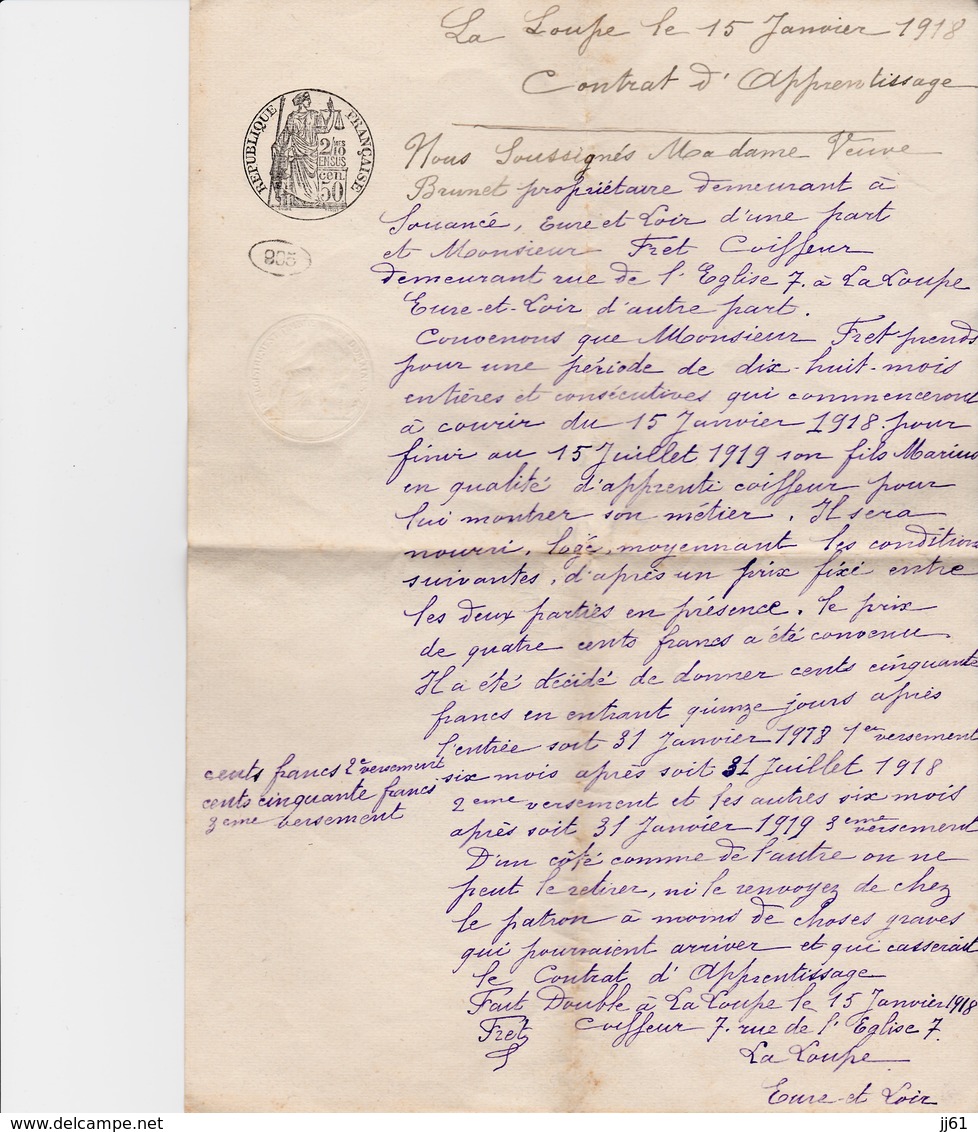 La Loupe le 15 Janvier 1918
Contrat d'Apprentissage
REPUBLIQUE FRANÇAISE
2/10
EN SUS
50
Nous Soussignés Madame Veuve
Brunet propriétaire demeurant à
Souancé, Eure et Loir d'une part
905
et Monsieur Fret Coiffeur
demeurant rue de l'Eglise 7. à La Loupe
Eure-et-Loir d'autre part.
Convenons que Monsieur Fret prends
pour une période de dix-huit-mois
entières et consécutives qui commenceront
à courir du 15 Janvier 1918. pour
finir au 15 Juillet 1919 son fils Marius
en qualité d'apprenti coiffeur pour
lui montrer son métier. Il sera
nourri, logé, moyennant les conditions
suivantes, d'après un prix fixé entre
les deux parties en présence. le prix
de quatre cents francs a été convenu.
Il a été décidé de donner cents cinquante
francs en entrant quinze jours après
l'entrée soit 31 Janvier 1918 1er versement
cents francs 2e versement
six mois après soit 31 Juillet 1918
cents cinquante francs
2eme versement et les autres six mois
3eme versement
après soit 31 Janvier 1919 3eme versement
D'un côté comme de l'autre on ne
peut le retirer, ni le renvoyez de chez
le patron à moins de choses graves
qui pourraient arriver et qui casserait
le Contrat d'Apprentissage
Fait Double à La Loupe le 15 Janvier 1918
Fret Coiffeur 7. rue de l'Eglise 7.
La Loupe
Eure-et Loir
www.delcampe.net
jj61